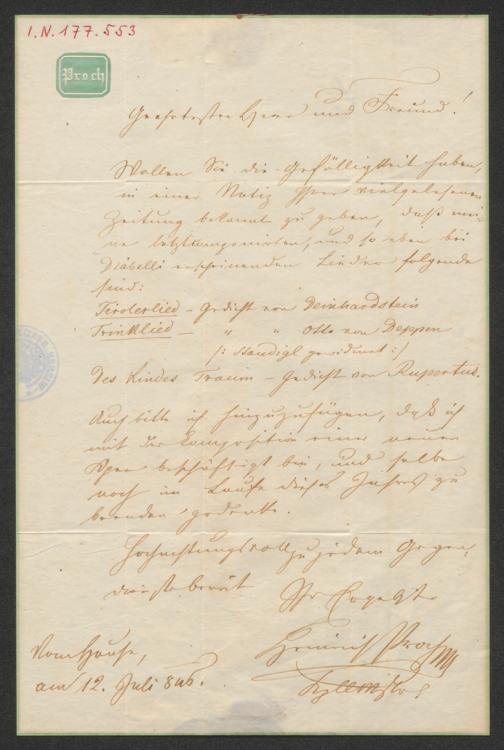 I.N. 177.553
Proch
Geehrtester Herr und Freund!
Wollen Sie die Gefälligkeit haben,
in einer Notiz Ihrer vielgelesenen
Zeitung bekannt zu geben, daß mei-
ne letztcomponirten, und so eben bei
Diabelli erscheinenden Lieder folgende
sind:
Tirolerlied – Gedicht von Deinhardstein
Trinklied – " " Otto von Deppen
/: Staudigl gewidmet :/
Des Kindes Traum – Gedicht von Rupertus.
Auch bitte ich hinzuzufügen, daß ich
mit der Composition einer neuen
Oper beschäftigt bin, und selbe
noch im Laufe dieses Jahres zu
beenden gedenke.
Hochachtungsvoll zu jedem Gegen-
dienste bereit
Ihr Ergebenster
Heinrich Proch
Kapellmeister
Vom Hause,
am 12. Juli 846.